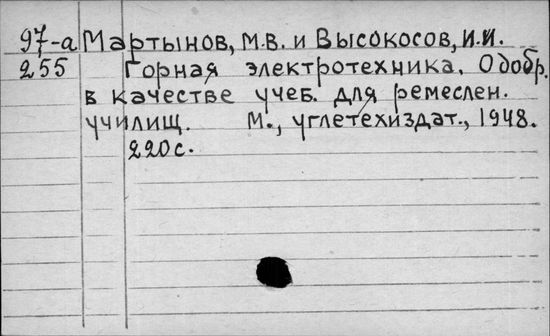 97-а Мартынов, М.В. и Высокосов, И.И.
255 Горная электротехника. Одобр.
в качестве учеб. для ремеслен.
училищ. М., углетехиздат., 1948.
220с.